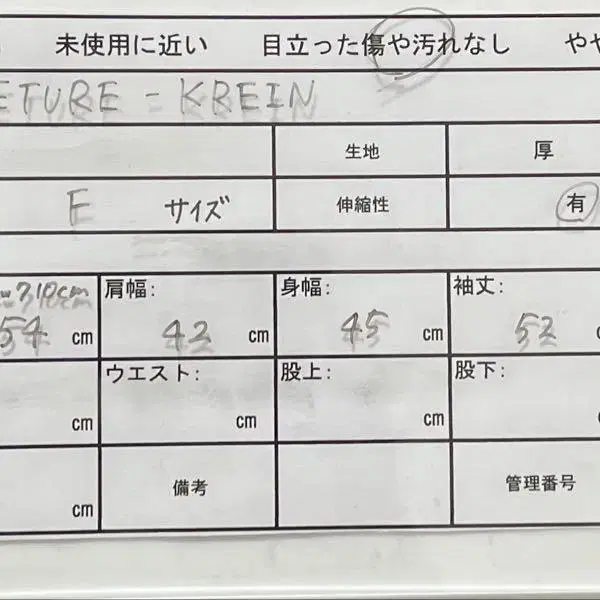 未使用に近い 目立った傷や汚れなし やや
ETURE - KREIN
生地 厚
F サイズ 伸縮性 有
10cm 肩幅: 身幅: 袖丈:
54 cm 42 cm 45 cm 52
ウエスト: 股上: 股下:
cm cm cm
cm 備考 管理番号